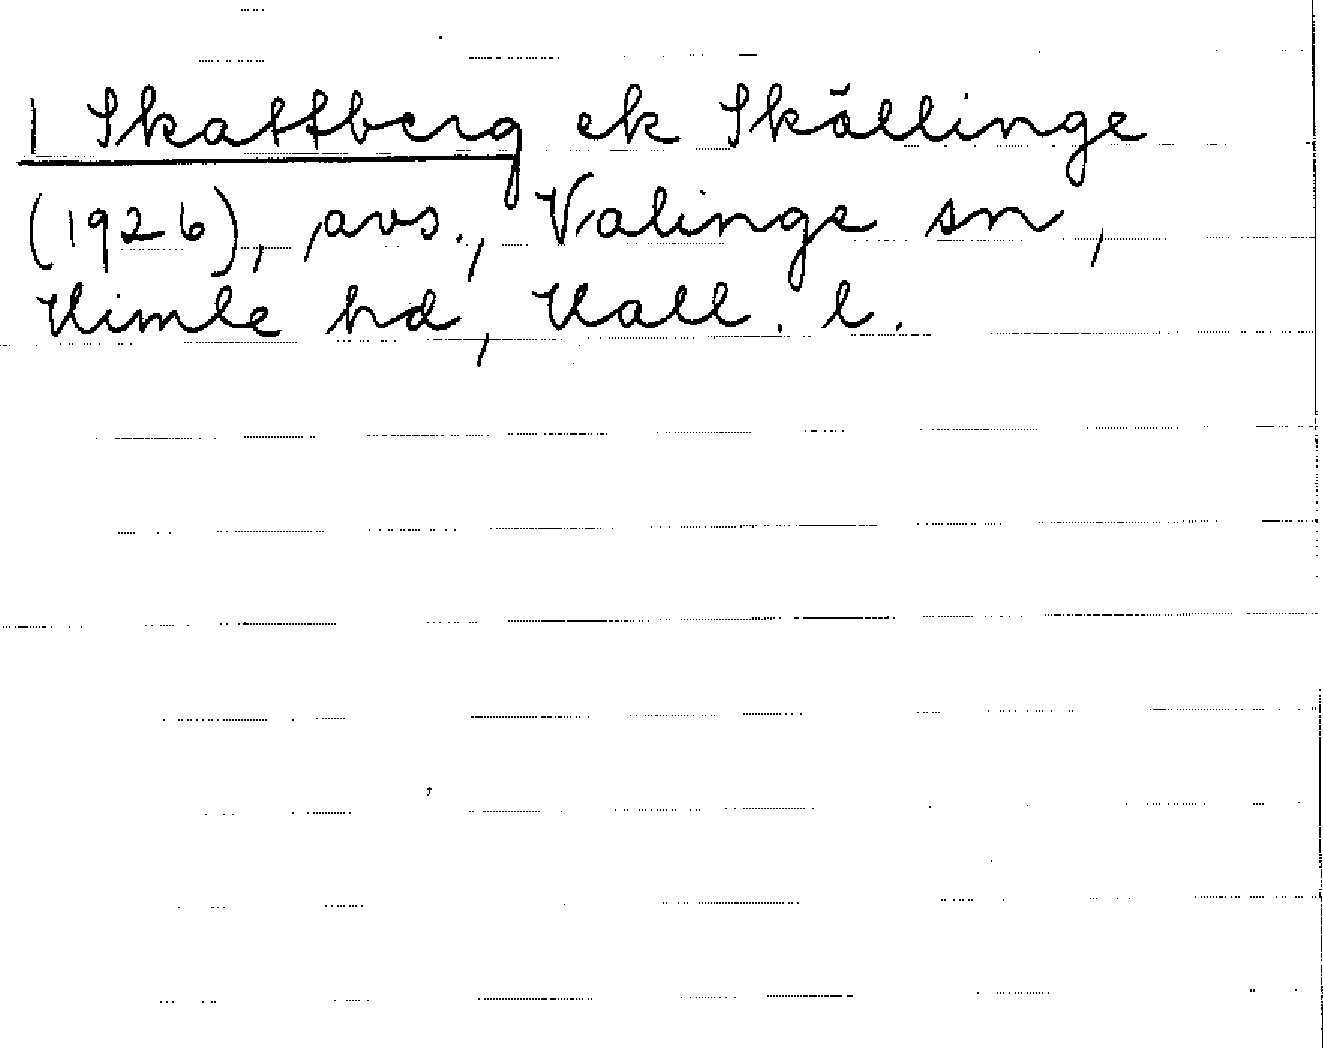 1 Skattberg ek Skällinge
(1926), avs., Valinge sn,
Himle hd, Hall. l.